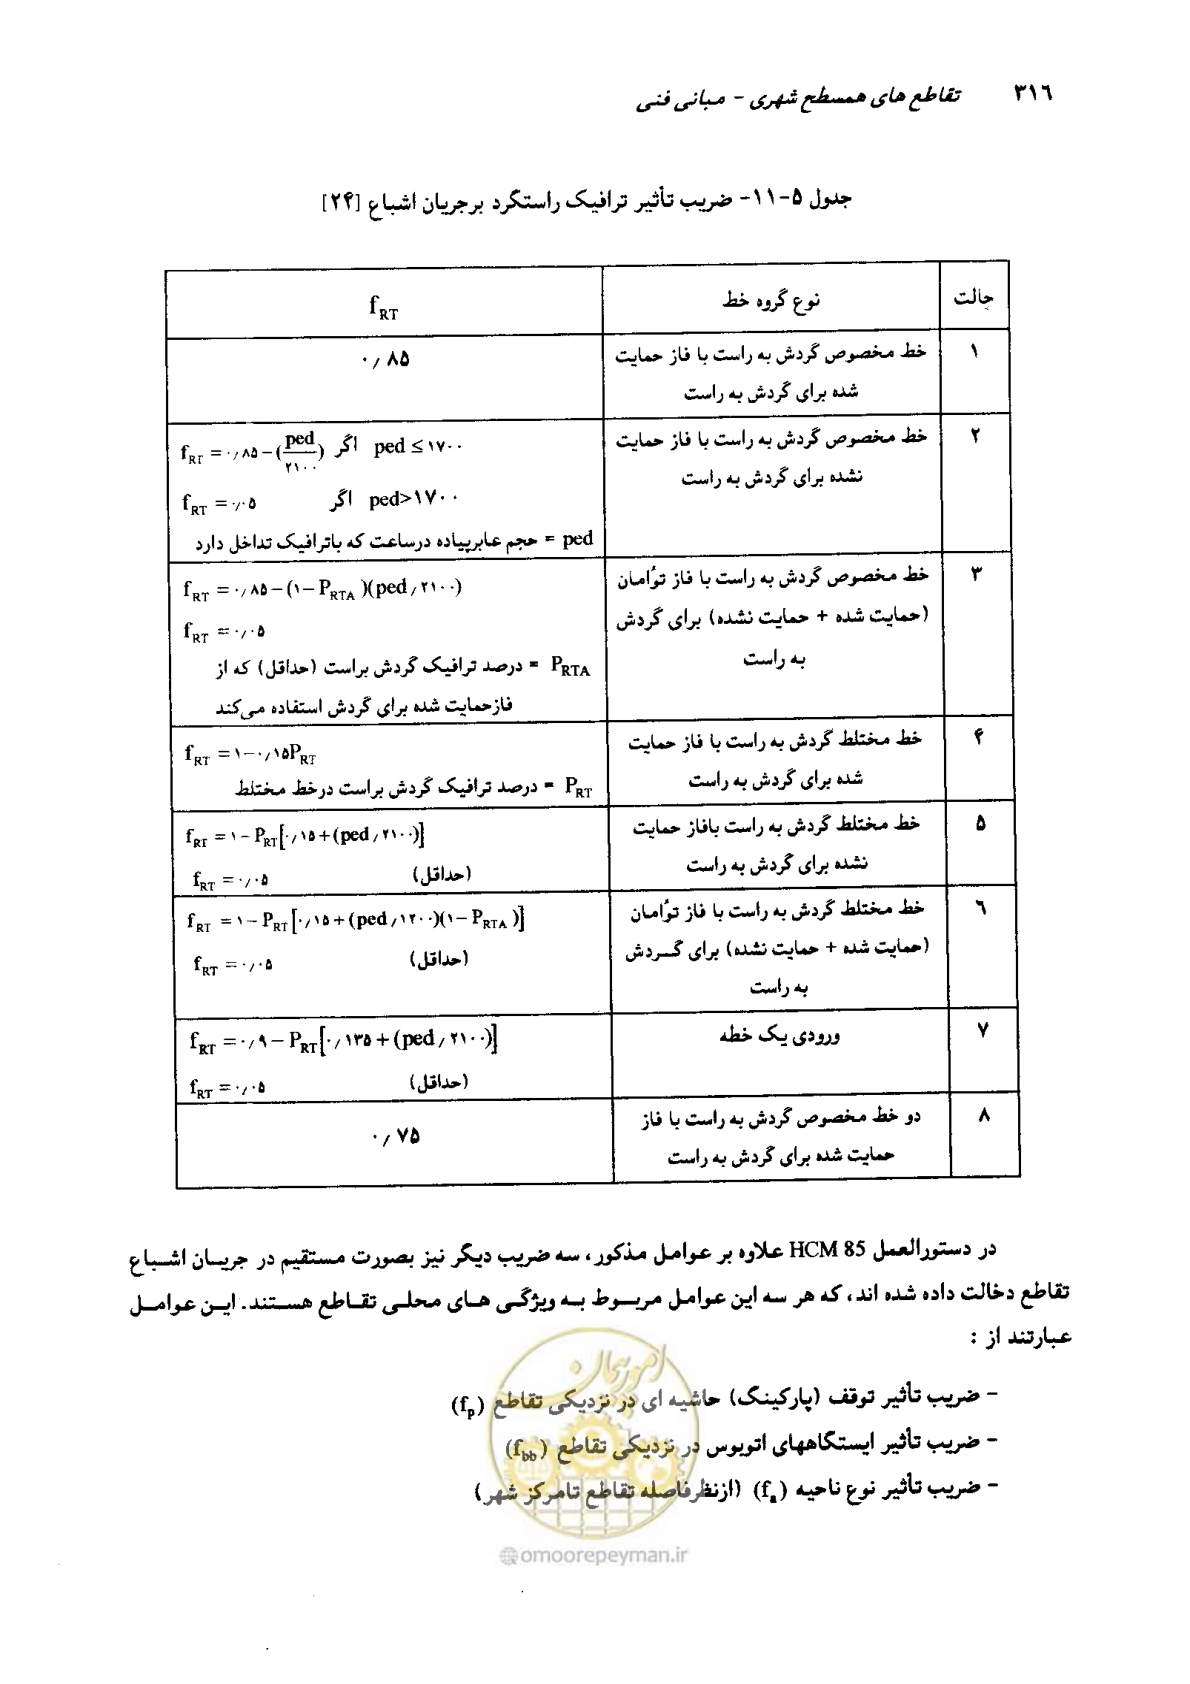 ۳۱۶ تقاطع های همسطح شهری - مبانی فنی
جدول ۵-۱۱- ضریب تأثیر ترافیک راستگرد برجریان اشباع [۲۴]
حالت نوع گروه خط f RT
۱ خط مخصوص گردش به راست با فاز حمایت ۰/۸۵
شده برای گردش به راست
۲ خط مخصوص گردش به راست با فاز حمایت
نشده برای گردش به راست
f RT = ۰/۸۵-(ped/۲۱۰۰) اگر ped ≤ ۱۷۰۰
f RT = ۰/۰۵ اگر ped>۱۷۰۰
ped = حجم عابرپیاده درساعت که باترافیک تداخل دارد
۳ خط مخصوص گردش به راست با فاز توأمان
(حمایت شده + حمایت نشده) برای گردش
به راست
f RT = ۰/۸۵-(۱-P RTA)(ped/۲۱۰۰)
f RT = ۰/۰۵
P RTA = درصد ترافیک گردش براست (حداقل) که از
فازحمایت شده برای گردش استفاده می‌کند
۴ خط مختلط گردش به راست با فاز حمایت
شده برای گردش به راست
f RT = ۱-۰/۱۵P RT
P RT = درصد ترافیک گردش براست درخط مختلط
۵ خط مختلط گردش به راست بافاز حمایت
نشده برای گردش به راست
f RT = ۱-P RT[۰/۱۵+(ped/۲۱۰۰)]
f RT = ۰/۰۵ (حداقل)
۶ خط مختلط گردش به راست با فاز توأمان
(حمایت شده + حمایت نشده) برای گـردش
به راست
f RT = ۱-P RT[۰/۱۵+(ped/۱۲۰۰)(۱-P RTA)]
f RT = ۰/۰۵ (حداقل)
۷ ورودی یک خطه
f RT = ۰/۹-P RT[۰/۱۳۵+(ped/۲۱۰۰)]
f RT = ۰/۰۵ (حداقل)
۸ دو خط مخصوص گردش به راست با فاز ۰/۷۵
حمایت شده برای گردش به راست
در دستورالعمل HCM 85 علاوه بر عوامل مذکور، سه ضریب دیگر نیز بصورت مستقیم در جریـان اشـباع
تقاطع دخالت داده شده اند، که هر سه این عوامل مربـوط بـه ویژگـی هـای محلـی تقـاطع هسـتند. ایـن عوامـل
عبارتند از :
- ضریب تأثیر توقف (پارکینگ) حاشیه ای در نزدیکی تقاطع (f p)
- ضریب تأثیر ایستگاههای اتوبوس در نزدیکی تقاطع (f bb)
- ضریب تأثیر نوع ناحیه (f a) (ازنظرفاصله تقاطع تامرکز شهر)
امور پیمان
@omoorepeyman.ir